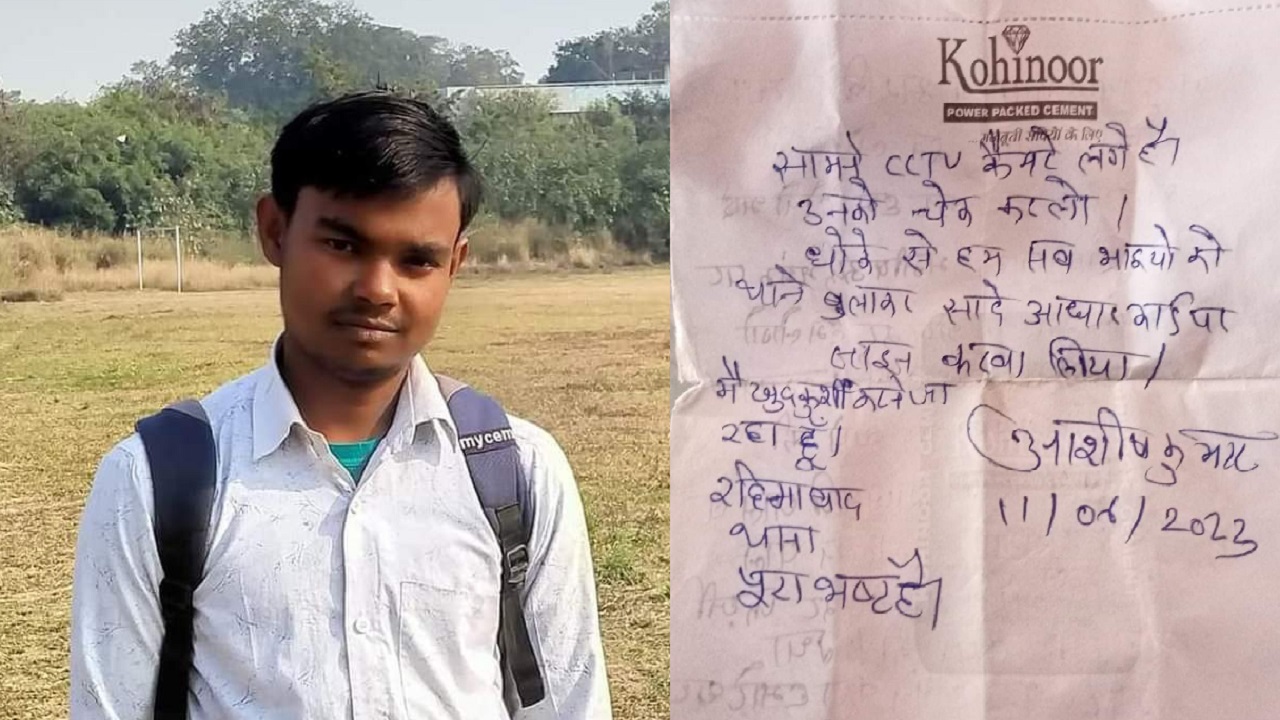 mycem
Kohinoor
POWER PACKED CEMENT
के लिए
सामने CCTV कैमरे लगे है।
उनको चेक करलो।
धोके से हम सब भाइयो को
थाने बुलाकर सादे आधार कार्ड पर
साइन करवा लिया।
मै खुदकुशी करने जा
रहा हूँ।
आशीष कुमार
11/ /2023
रहिमाबाद
थाना
पूरा भ्रष्ट है।